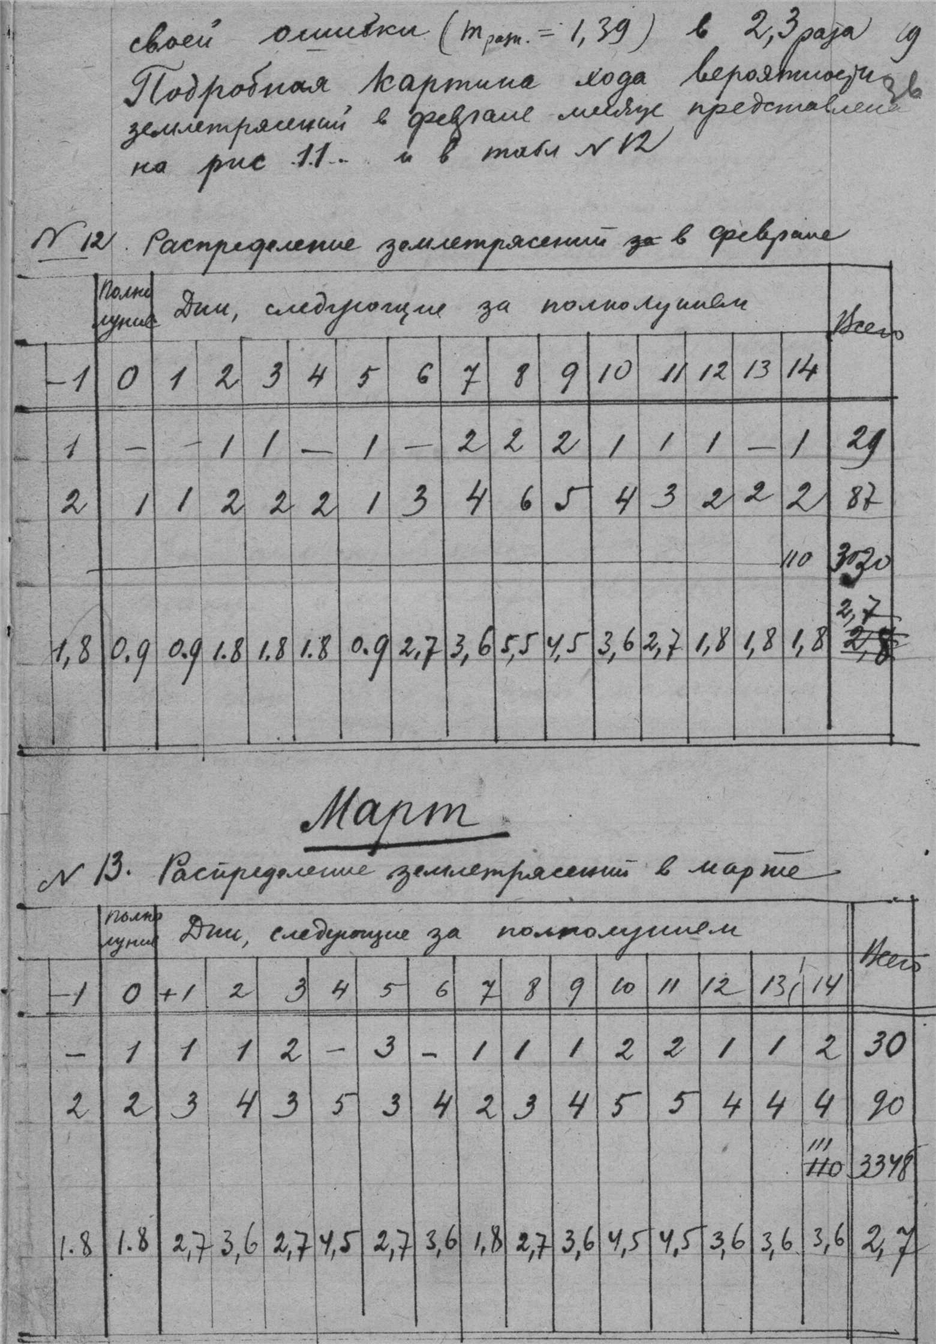 своей ошибки (m разн. = 1,39) в 2,3 раза
Подробная картина хода вероятности
землетрясений в феврале месяце представлена
на рис 11. и в табл № 12
№ 12. Распределение землетрясений за в феврале
Полно
луние
Дни, следующие за полнолунием
Всего
-1 0 1 2 3 4 5 6 7 8 9 10 11 12 13 14
1 – – 1 1 – 1 – 2 2 2 1 1 1 – 1 29
2 1 1 2 2 2 1 3 4 6 5 4 3 2 2 2 87
110
2,7
1,8 0.9 0.9 1.8 1.8 1.8 0.9 2,7 3,6 5,5 4,5 3,6 2,7 1,8 1,8 1,8 2,8
Март
№ 13. Распределение землетрясений в марте
Полно
луние
Дни, следующие за полнолунием
Всего
-1 0 +1 2 3 4 5 6 7 8 9 10 11 12 13 14
– 1 1 1 2 – 3 – 1 1 1 2 2 1 1 2 30
2 2 3 4 3 5 3 4 2 3 4 5 5 4 4 4 90
111
110 3348
1.8 1.8 2,7 3,6 2,7 4,5 2,7 3,6 1,8 2,7 3,6 4,5 4,5 3,6 3,6 3,6 2,7